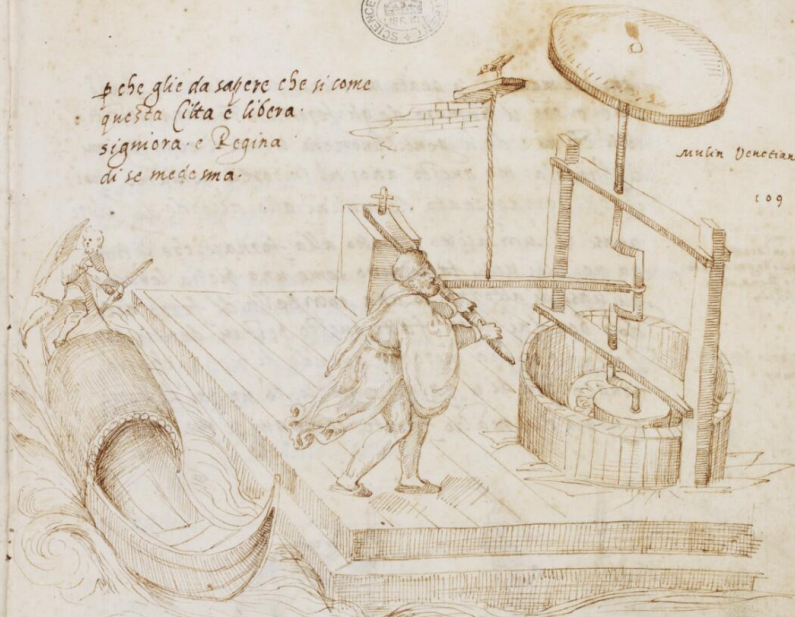 p che glie da sapere che si come
questa Citta è libera
signiora e Regina
di se medesma.
Mulin Venetian
109
SCIENCE